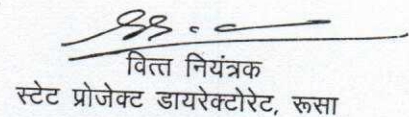 वित्त नियंत्रक
स्टेट प्रोजेक्ट डायरेक्टोरेट, रूसा